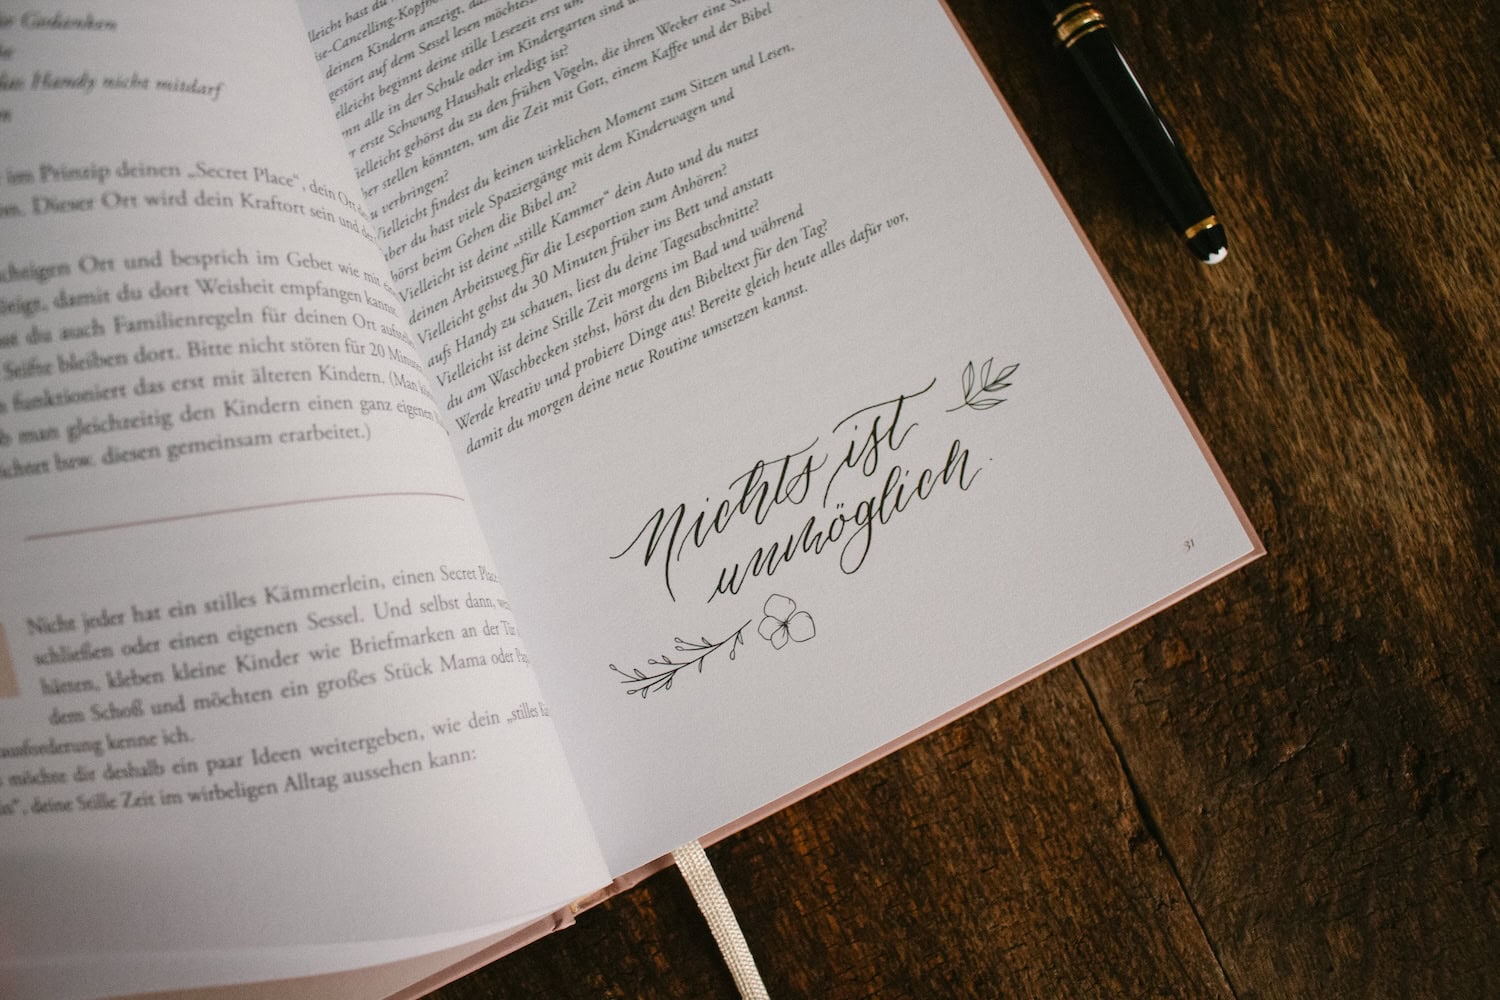 Gedenken
Handy nicht mitdarf
im Prinzip deinen „Secret Place“, dein Ort
Dieser Ort wird dein Kraftort sein und
Ort und besprich im Gebet wie mit
damit du dort Weisheit empfangen
du auch Familienregeln für deinen Ort
bleiben dort. Bitte nicht stören für 20
funktioniert das erst mit älteren Kindern. (Man
man gleichzeitig den Kindern einen ganz eigenen
bzw. diesen gemeinsam erarbeitet.)
Nicht jeder hat ein stilles Kämmerlein, einen Secret
schließen oder einen eigenen Sessel. Und selbst dann,
kleben kleine Kinder wie Briefmarken an der
dem Schoß und möchten ein großes Stück Mama oder
kenne ich.
möchte dir deshalb ein paar Ideen weitergeben, wie dein „stilles
deine Stille Zeit im wirbeligen Alltag aussehen kann:
hast du
deinen Kindern anzeigt,
auf dem Sessel lesen
beginnt deine stille Lesezeit erst
alle in der Schule oder im Kindergarten sind
erste Schwung Haushalt erledigt ist?
gehörst du zu den frühen Vögeln, die ihren Wecker eine
stellen könnten, um die Zeit mit Gott, einem Kaffee und der Bibel
verbringen?
Vielleicht findest du keinen wirklichen Moment zum Sitzen und Lesen,
aber du hast viele Spaziergänge mit dem Kinderwagen und
hörst beim Gehen die Bibel an?
Vielleicht ist deine „stille Kammer“ dein Auto und du nutzt
deinen Arbeitsweg für die Leseportion zum Anhören?
Vielleicht gehst du 30 Minuten früher ins Bett und anstatt
aufs Handy zu schauen, liest du deine Tagesabschnitte?
Vielleicht ist deine Stille Zeit morgens im Bad und während
du am Waschbecken stehst, hörst du den Bibeltext für den Tag?
Werde kreativ und probiere Dinge aus! Bereite gleich heute alles dafür vor,
damit du morgen deine neue Routine umsetzen kannst.
Nichts ist
unmöglich.
31